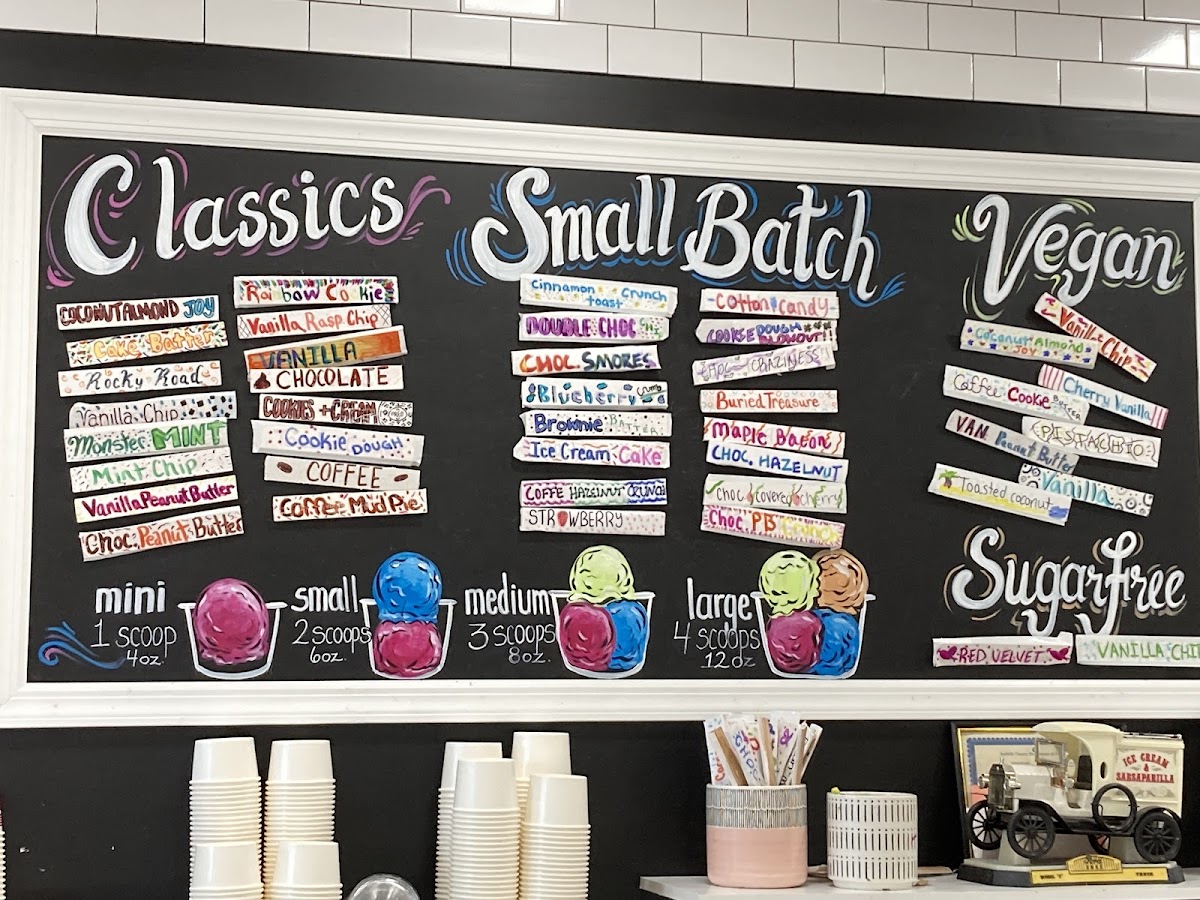 Classics
COCONUT ALMOND JOY
Cake Batter
Rocky Road
Vanilla Chip
Monster MINT
Mint Chip
Vanilla Peanut Butter
Choc. Peanut Butter
Rainbow Cookie
Vanilla Rasp. Chip
VANILLA
CHOCOLATE
COOKIES + CREAM
Cookie DOUGH
COFFEE
Coffee Mud Pie
Small Batch
Cinnamon Crunch
toast
DOUBLE CHOC
CHOC. SMORES
Blueberry
Brownie BATTER
Ice Cream Cake
COFFE HAZELNUT CRUNCH
STRWBERRY
Cotton Candy
COOKIE DOUGH
BLOWOUT!
Buried Treasure
Maple Bacon
CHOC. HAZELNUT
choc covered cherry
Choc. PB
Vegan
Vanilla Chip
Coconut Almond
JOY
Coffee Cookie
Cherry Vanilla
VAN. Peanut Butter
PISTACHIO
Vanilla
Toasted coconut
Sugar free
RED VELVET
VANILLA CHI
mini
1 scoop
4oz.
small
2 scoops
6oz.
medium
3 scoops
8oz.
large
4 scoops
12 oz
ICE CREAM
&
SARSAPARILLA